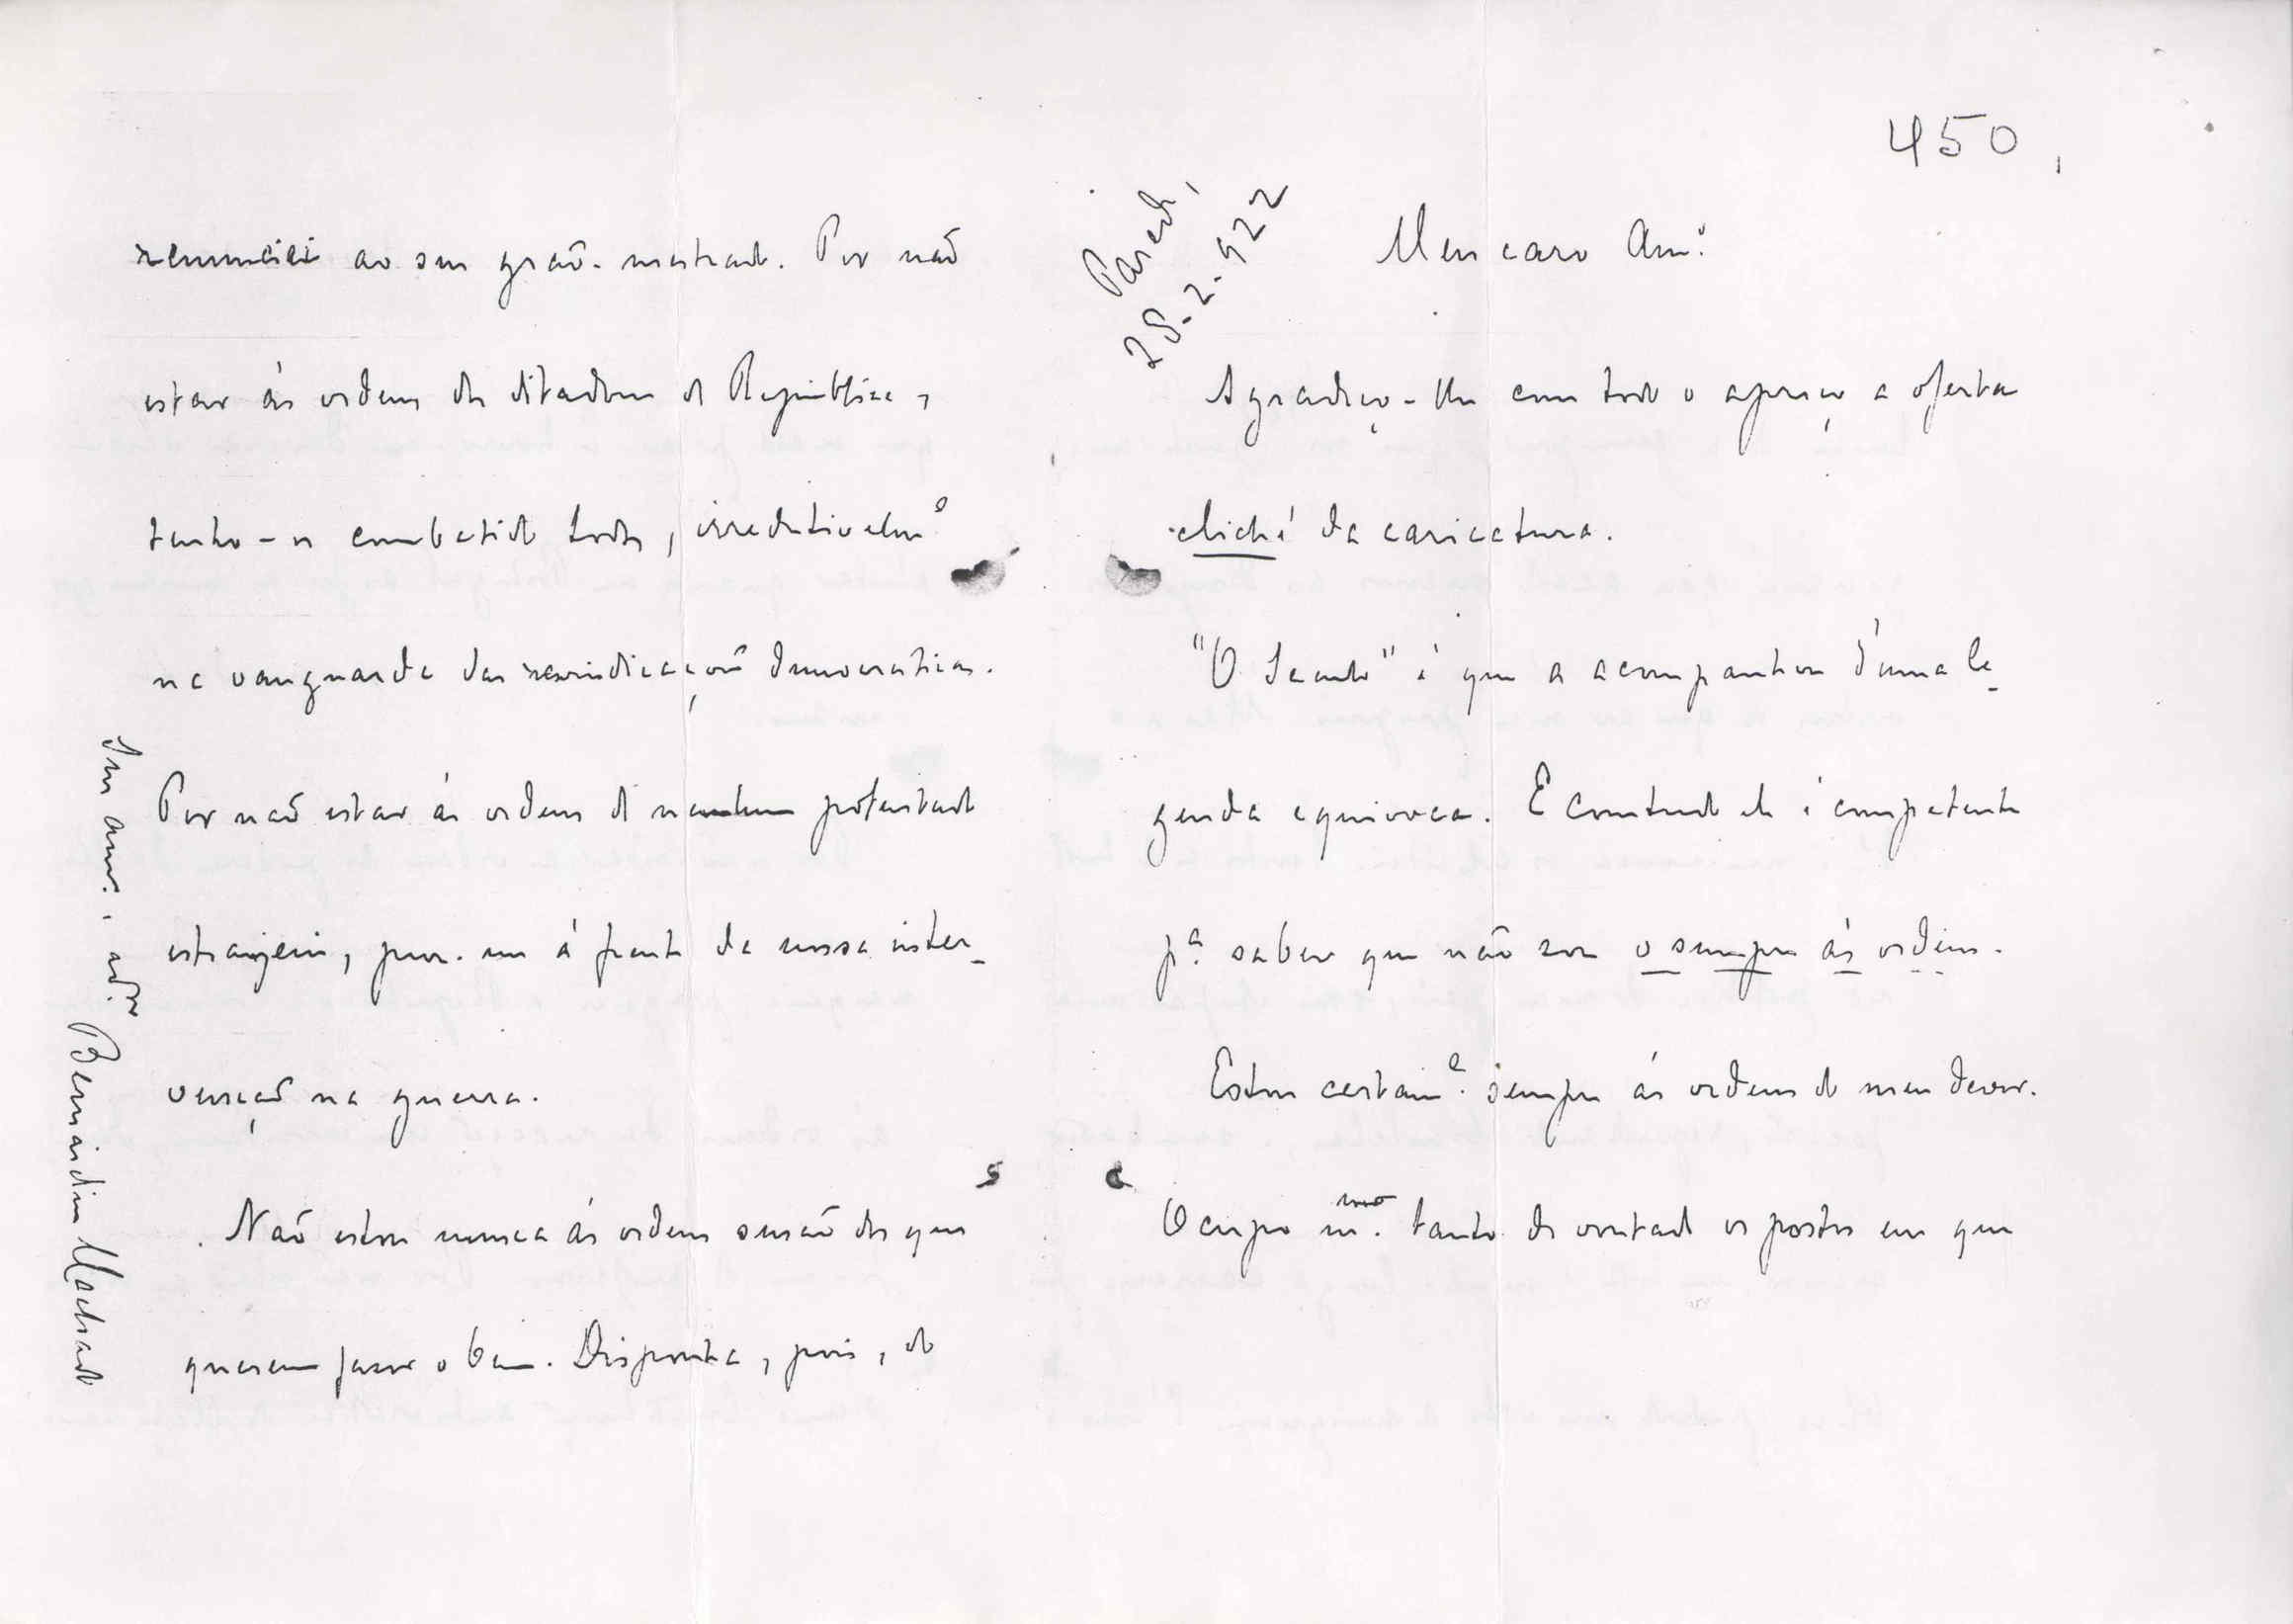 450
Parede,
28-2-922
Meu caro Am.º
Agradeço-lhe com todo o apreço a oferta
cliché da caricatura.
"O Seculo" é que a acompanhou d'uma le-
genda equivoca. E comtudo ele é competente
p.ª saber que não sou o sempre ás ordens.
Estou certam.e sempre ás ordens do meu dever.
Ocupo tanto de vontade os postos em que
renunciei ao seu grão-mestrado. Por não
estar ás ordens dos ditadores da Republica,
tenho-os combatido todos, irredutivelm.e
na vanguarda das reivindicações democraticas.
Por não estar ás ordens de nenhum potentado
estrangeiro, puz-me á frente da nossa inter-
venção na guerra.
Não estou nunca ás ordens senão dos que
querem fazer o bem. Disponha, pois, do
Seu am.º e ad.or
Bernardino Machado